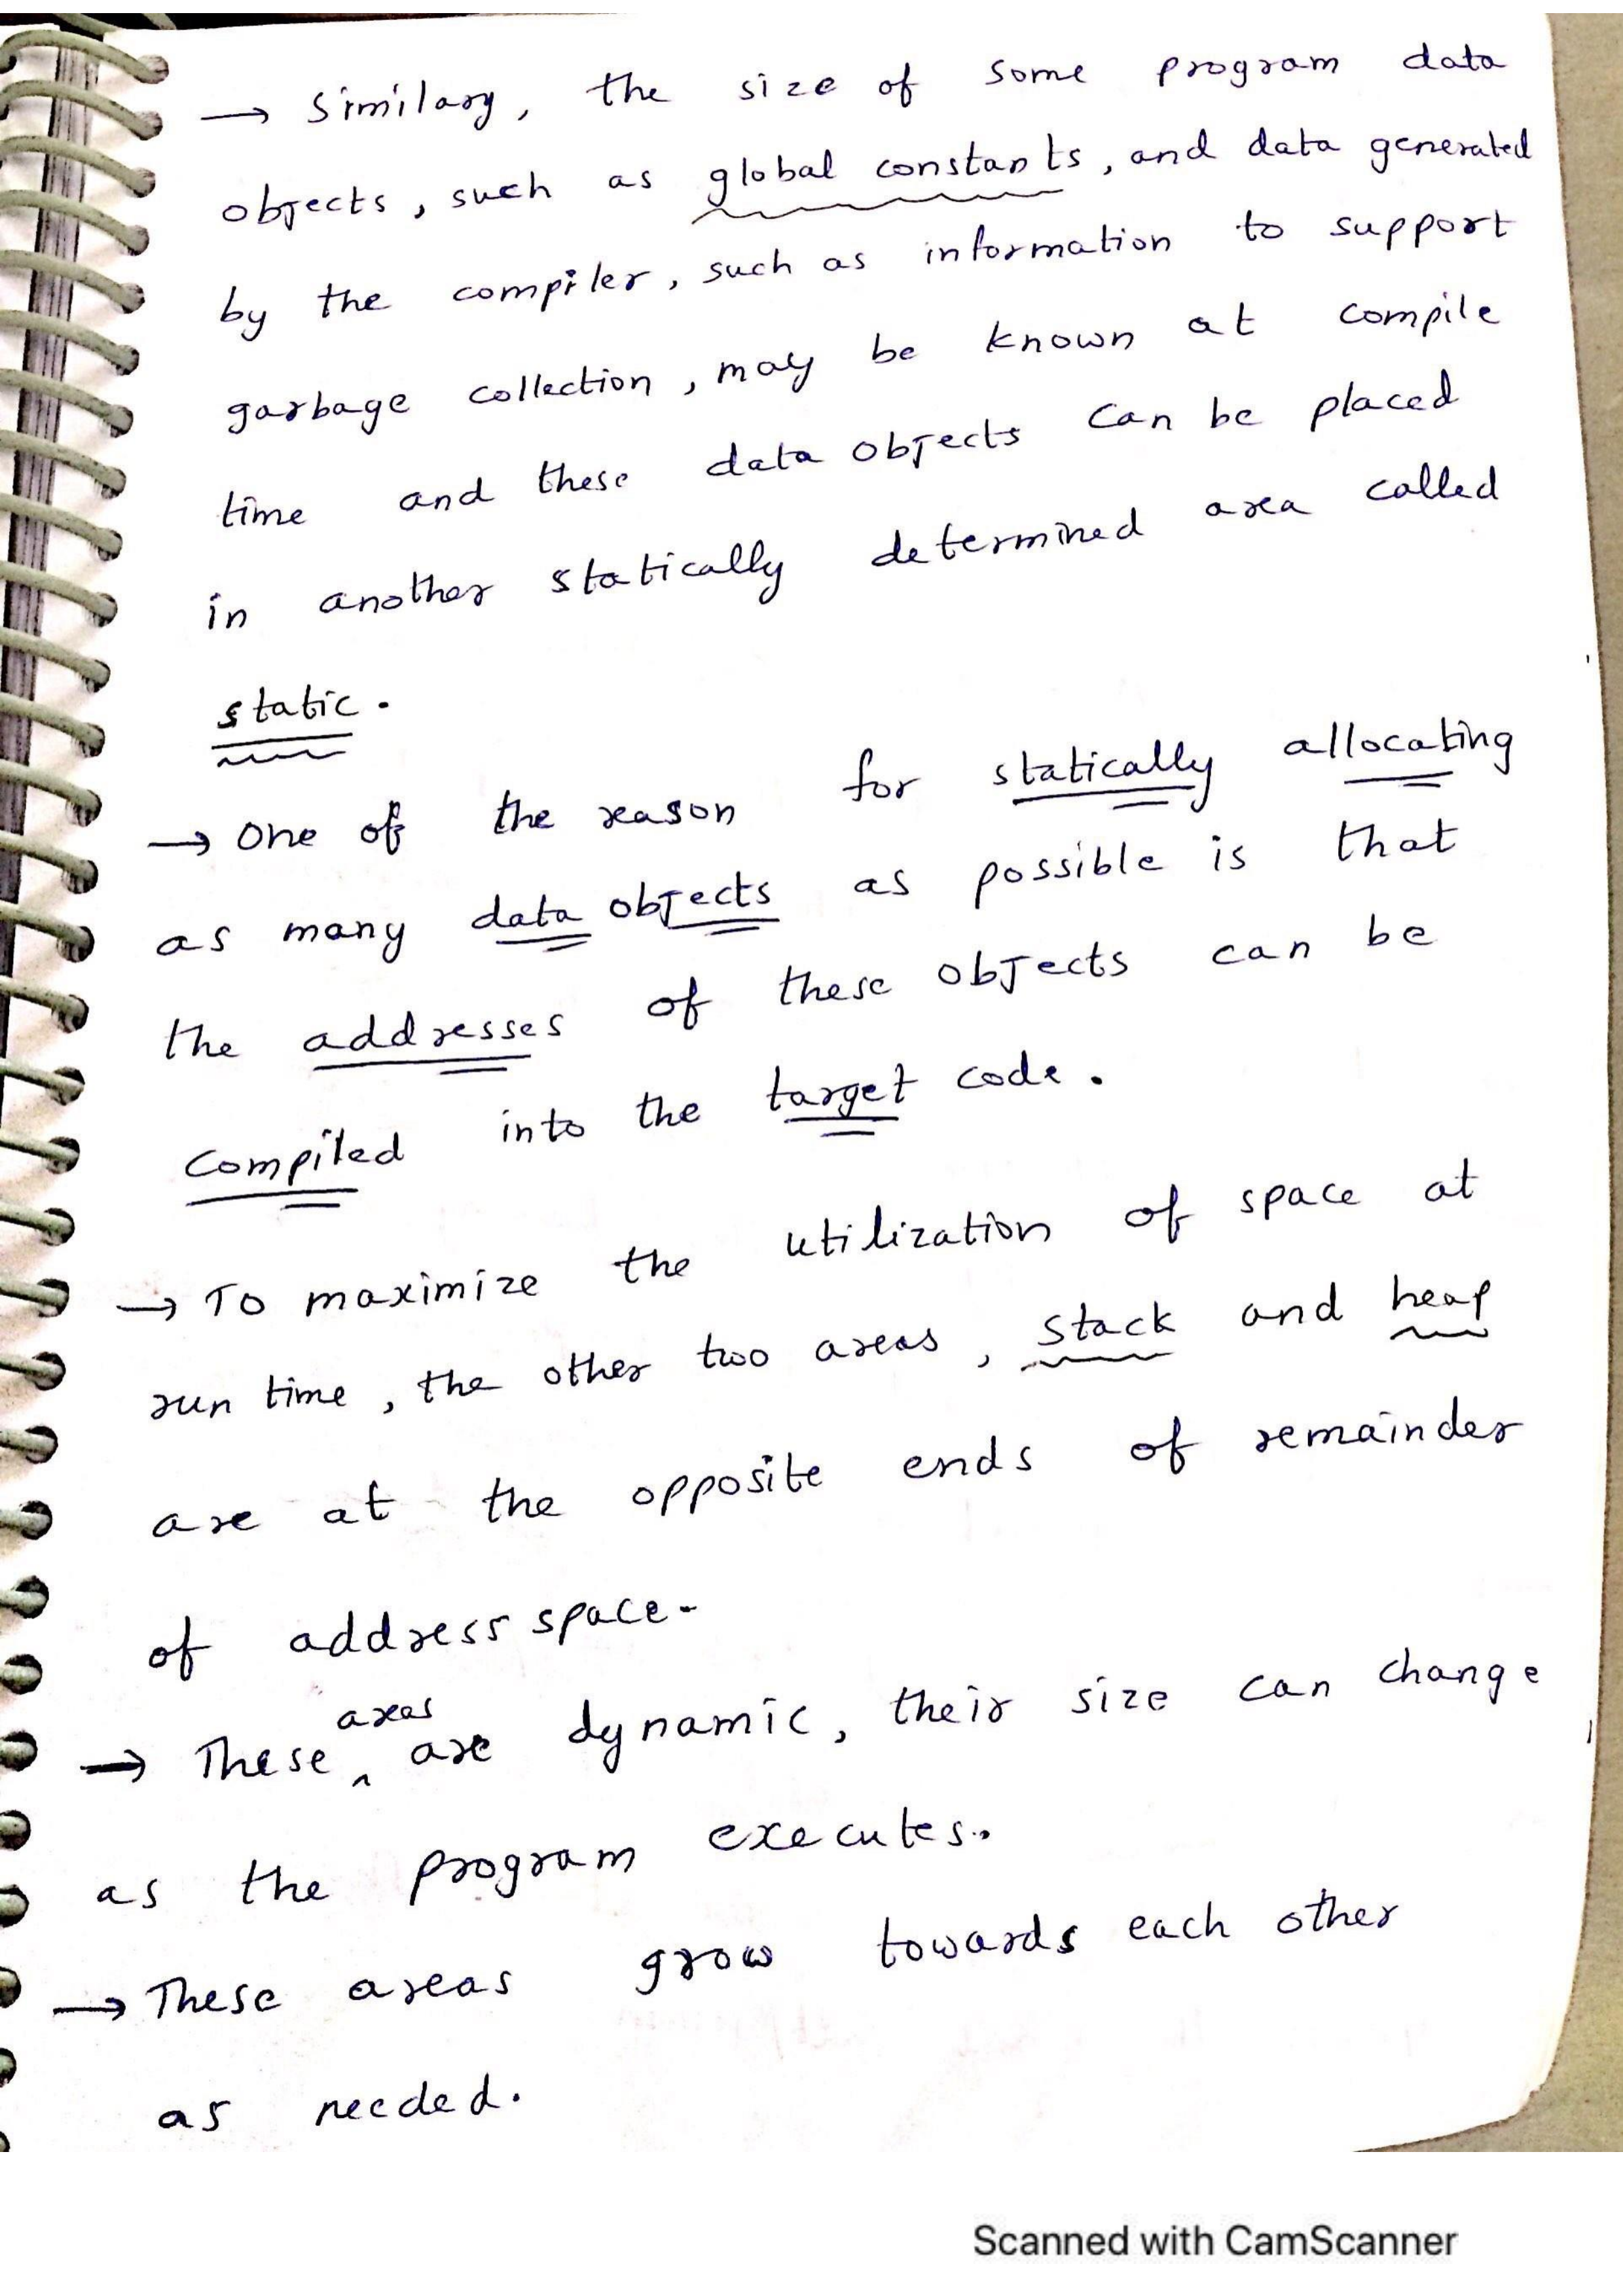 → Similary, the size of some program data
objects, such as global constants, and data generated
by the compiler, such as information to support
garbage collection, may be known at compile
time and these data objects can be placed
in another statically determined area called
static.
→ One of the reason for statically allocating
as many data objects as possible is that
the addresses of these objects can be
Compiled into the target code.
→ To maximize the utilization of space at
run time, the other two areas, stack and heap
are at the opposite ends of remainder
of address space.
areas
→ These ^ are dynamic, their size can change
as the program executes.
→ These areas grow towards each other
as needed.
Scanned with CamScanner